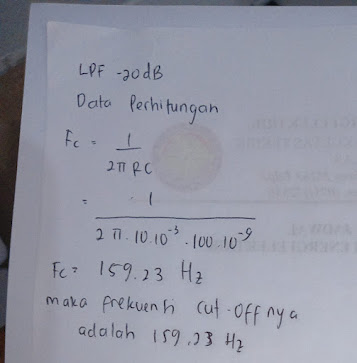 LPF -20dB
Data Perhitungan
Fc = 1
2π RC
= 1
2 π . 10.10⁻³ . 100.10⁻⁹
Fc = 159.23 Hz
maka frekuensi cut-off nya
adalah 159,23 Hz